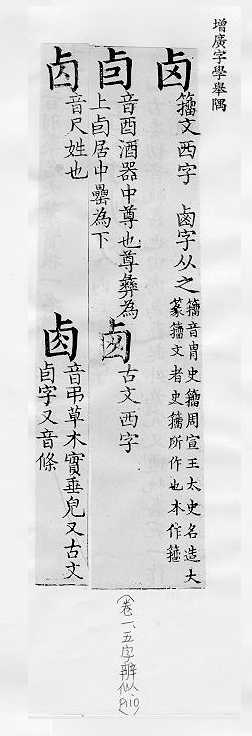 增廣字學舉隅
卤
籀文西字 鹵字从之
籀音冑史籀周宣王太史名造大
篆籀文者史籀所作也本作籒
卣
音酉酒器中尊也尊彝為
上卣居中罍為下
卥
古文西字
音尺姓也
卤
音弔草木實垂皃又古文
卣字又音條
(卷一、五字辨似 P110)